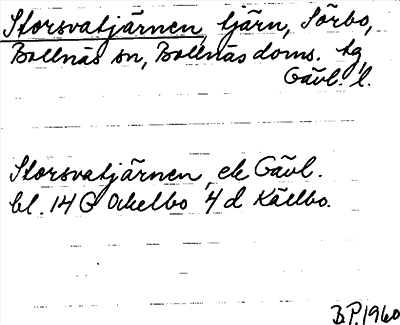 Storsvatjärnen, tjärn, Sörbo,
Bollnäs sn, Bollnäs doms. tg
Gävl. l.
Storsvatjärnen, ek Gävl.
bl. 14 G Ockelbo, 4 d Källbo.
B.P. 1960